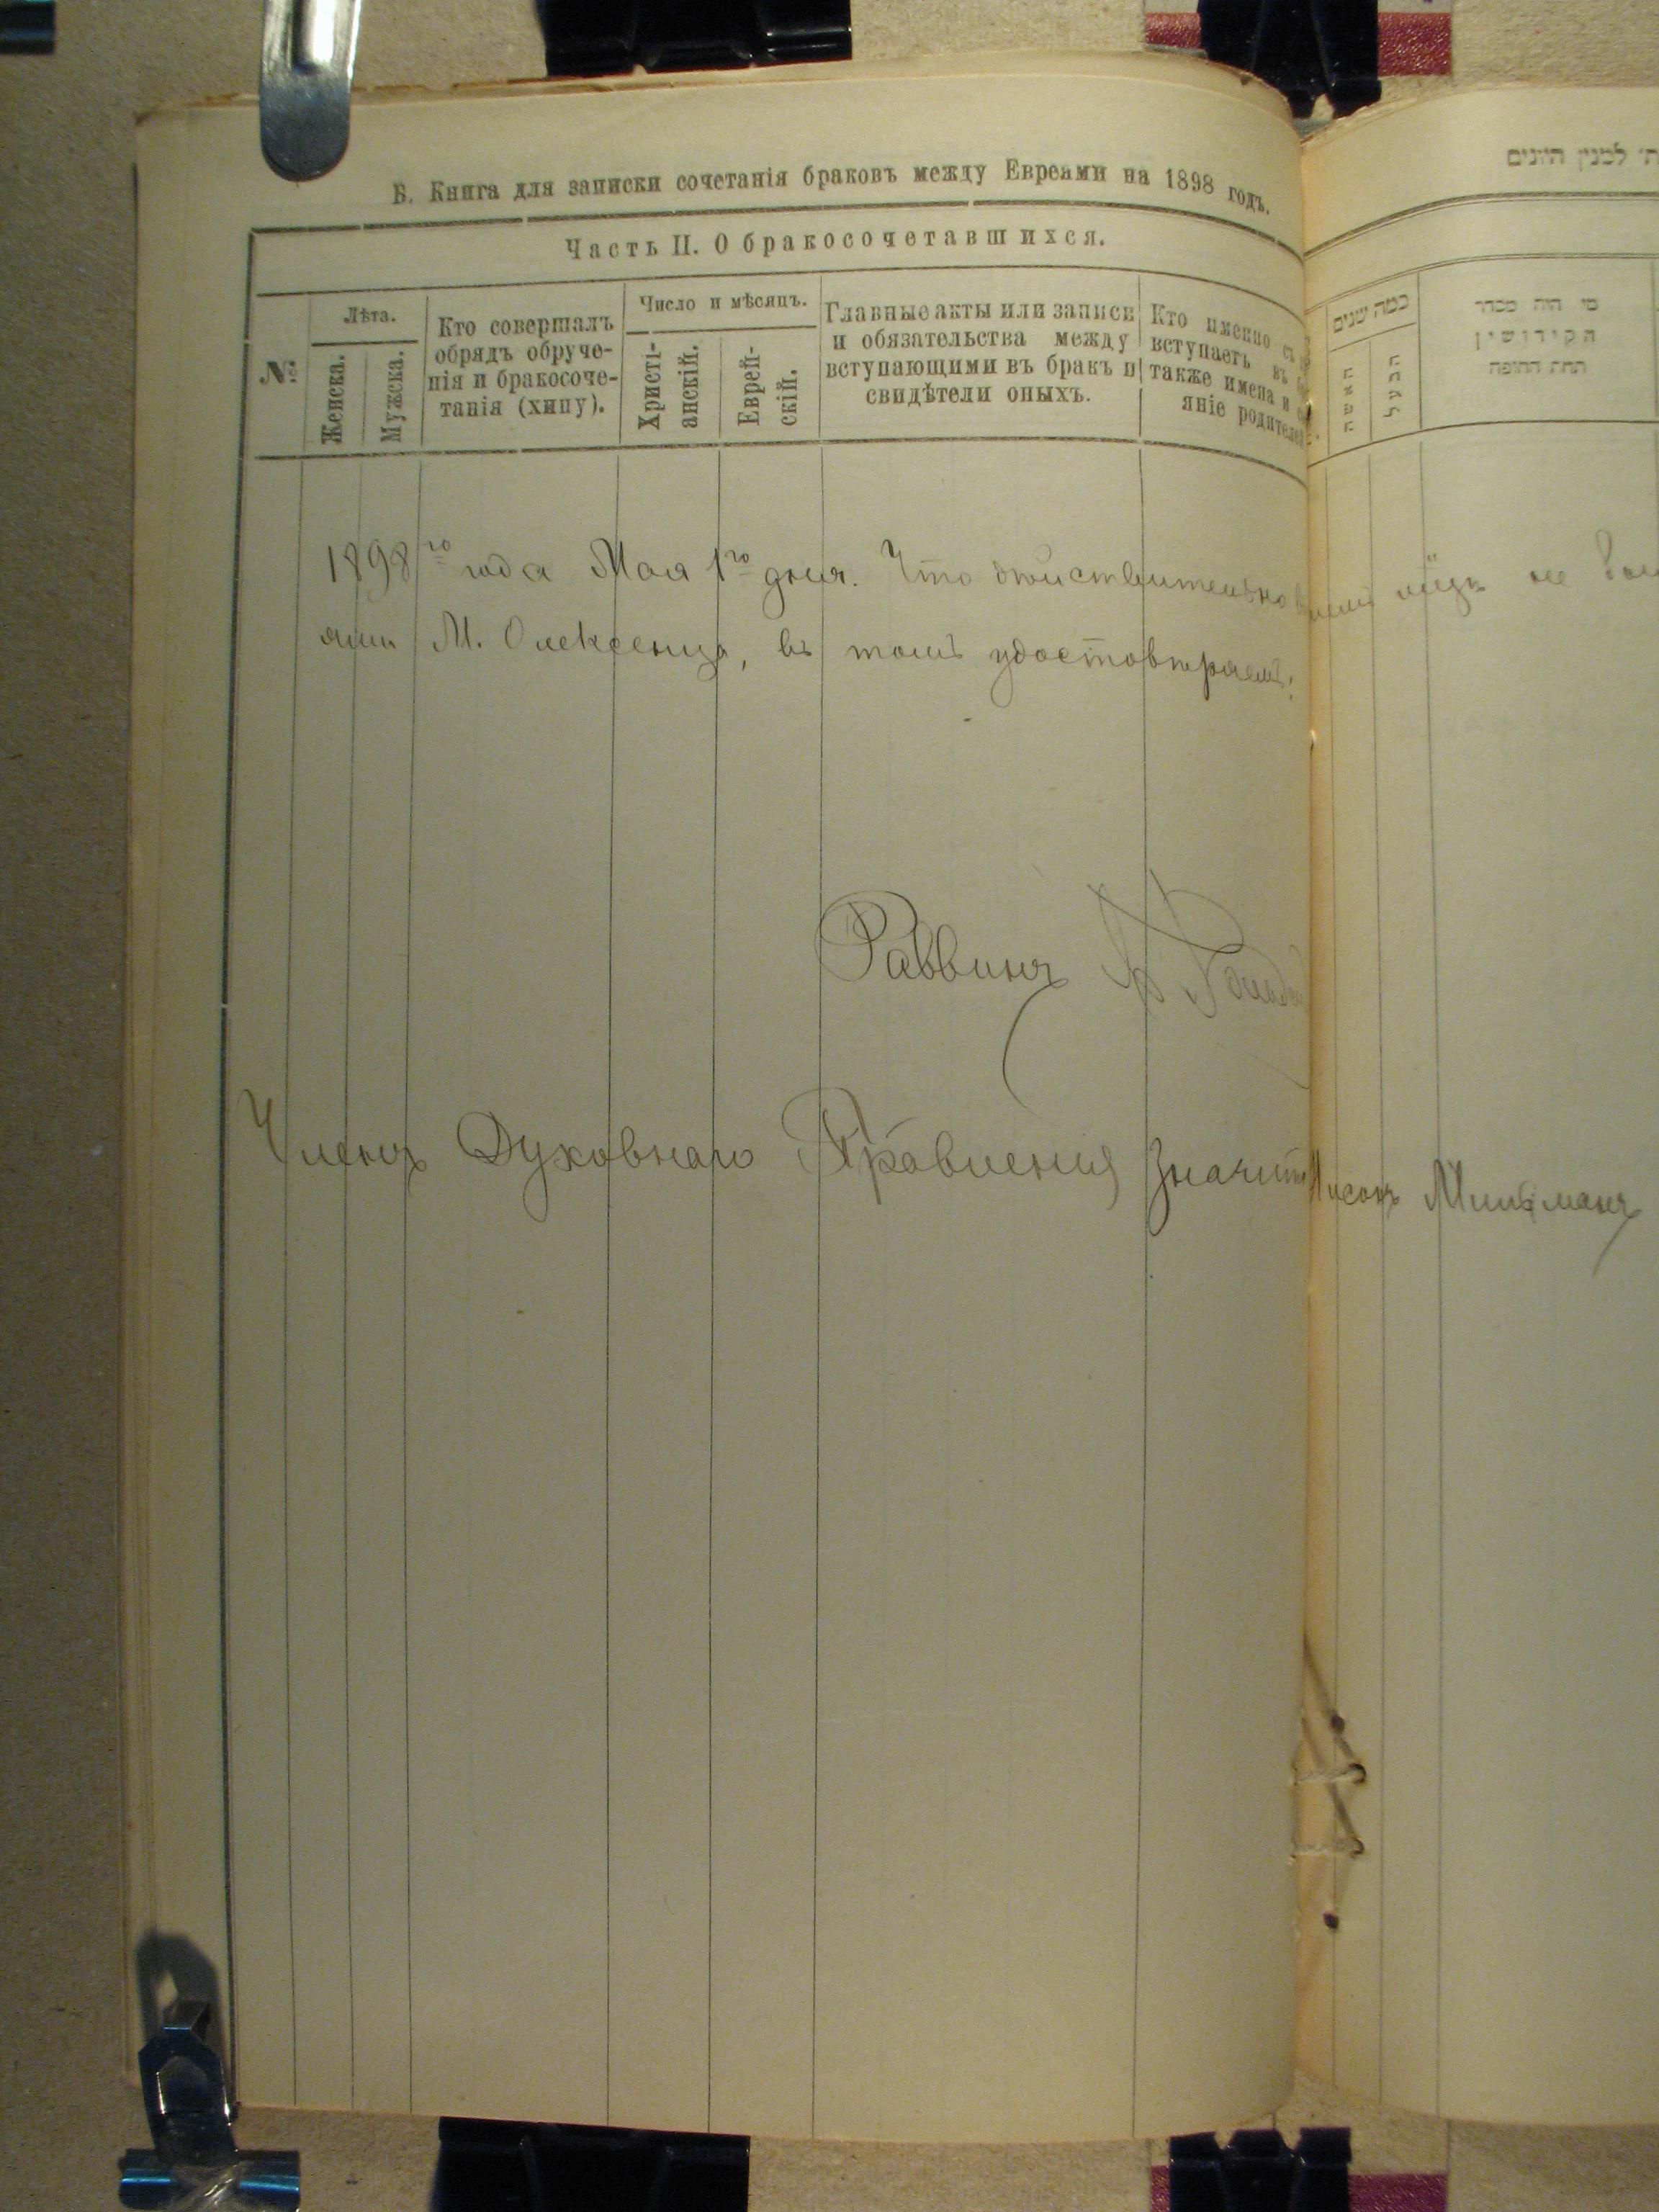 Б. Книга для записки сочетанія браковъ между Евреями на 1898 годъ.
Часть II. О бракосочетавшихся.
№
Лѣта.
Женска.
Мужска.
Кто совершалъ
обрядъ обруче-
нія и бракосоче-
танія (хипу).
Число и мѣсяцъ.
Христі-
анскій.
Еврей-
скій.
Главные акты или записи
и обязательства между
вступающими въ бракъ и
свидѣтели оныхъ.
Кто именно съ
вступаетъ въ
также имена и
яніе родителей
למנין היונים
כמה שנים
האשה
הבעל
מי היה מסדר
הקידושין
תחת החופה
1898го года Мая 1го дня. Что дѣйствительно
М. Олексенца, въ томъ удостовѣряемъ:
Раввинъ
Членъ Духовнаго Правленія Значитъ Нисонъ Мильманъ